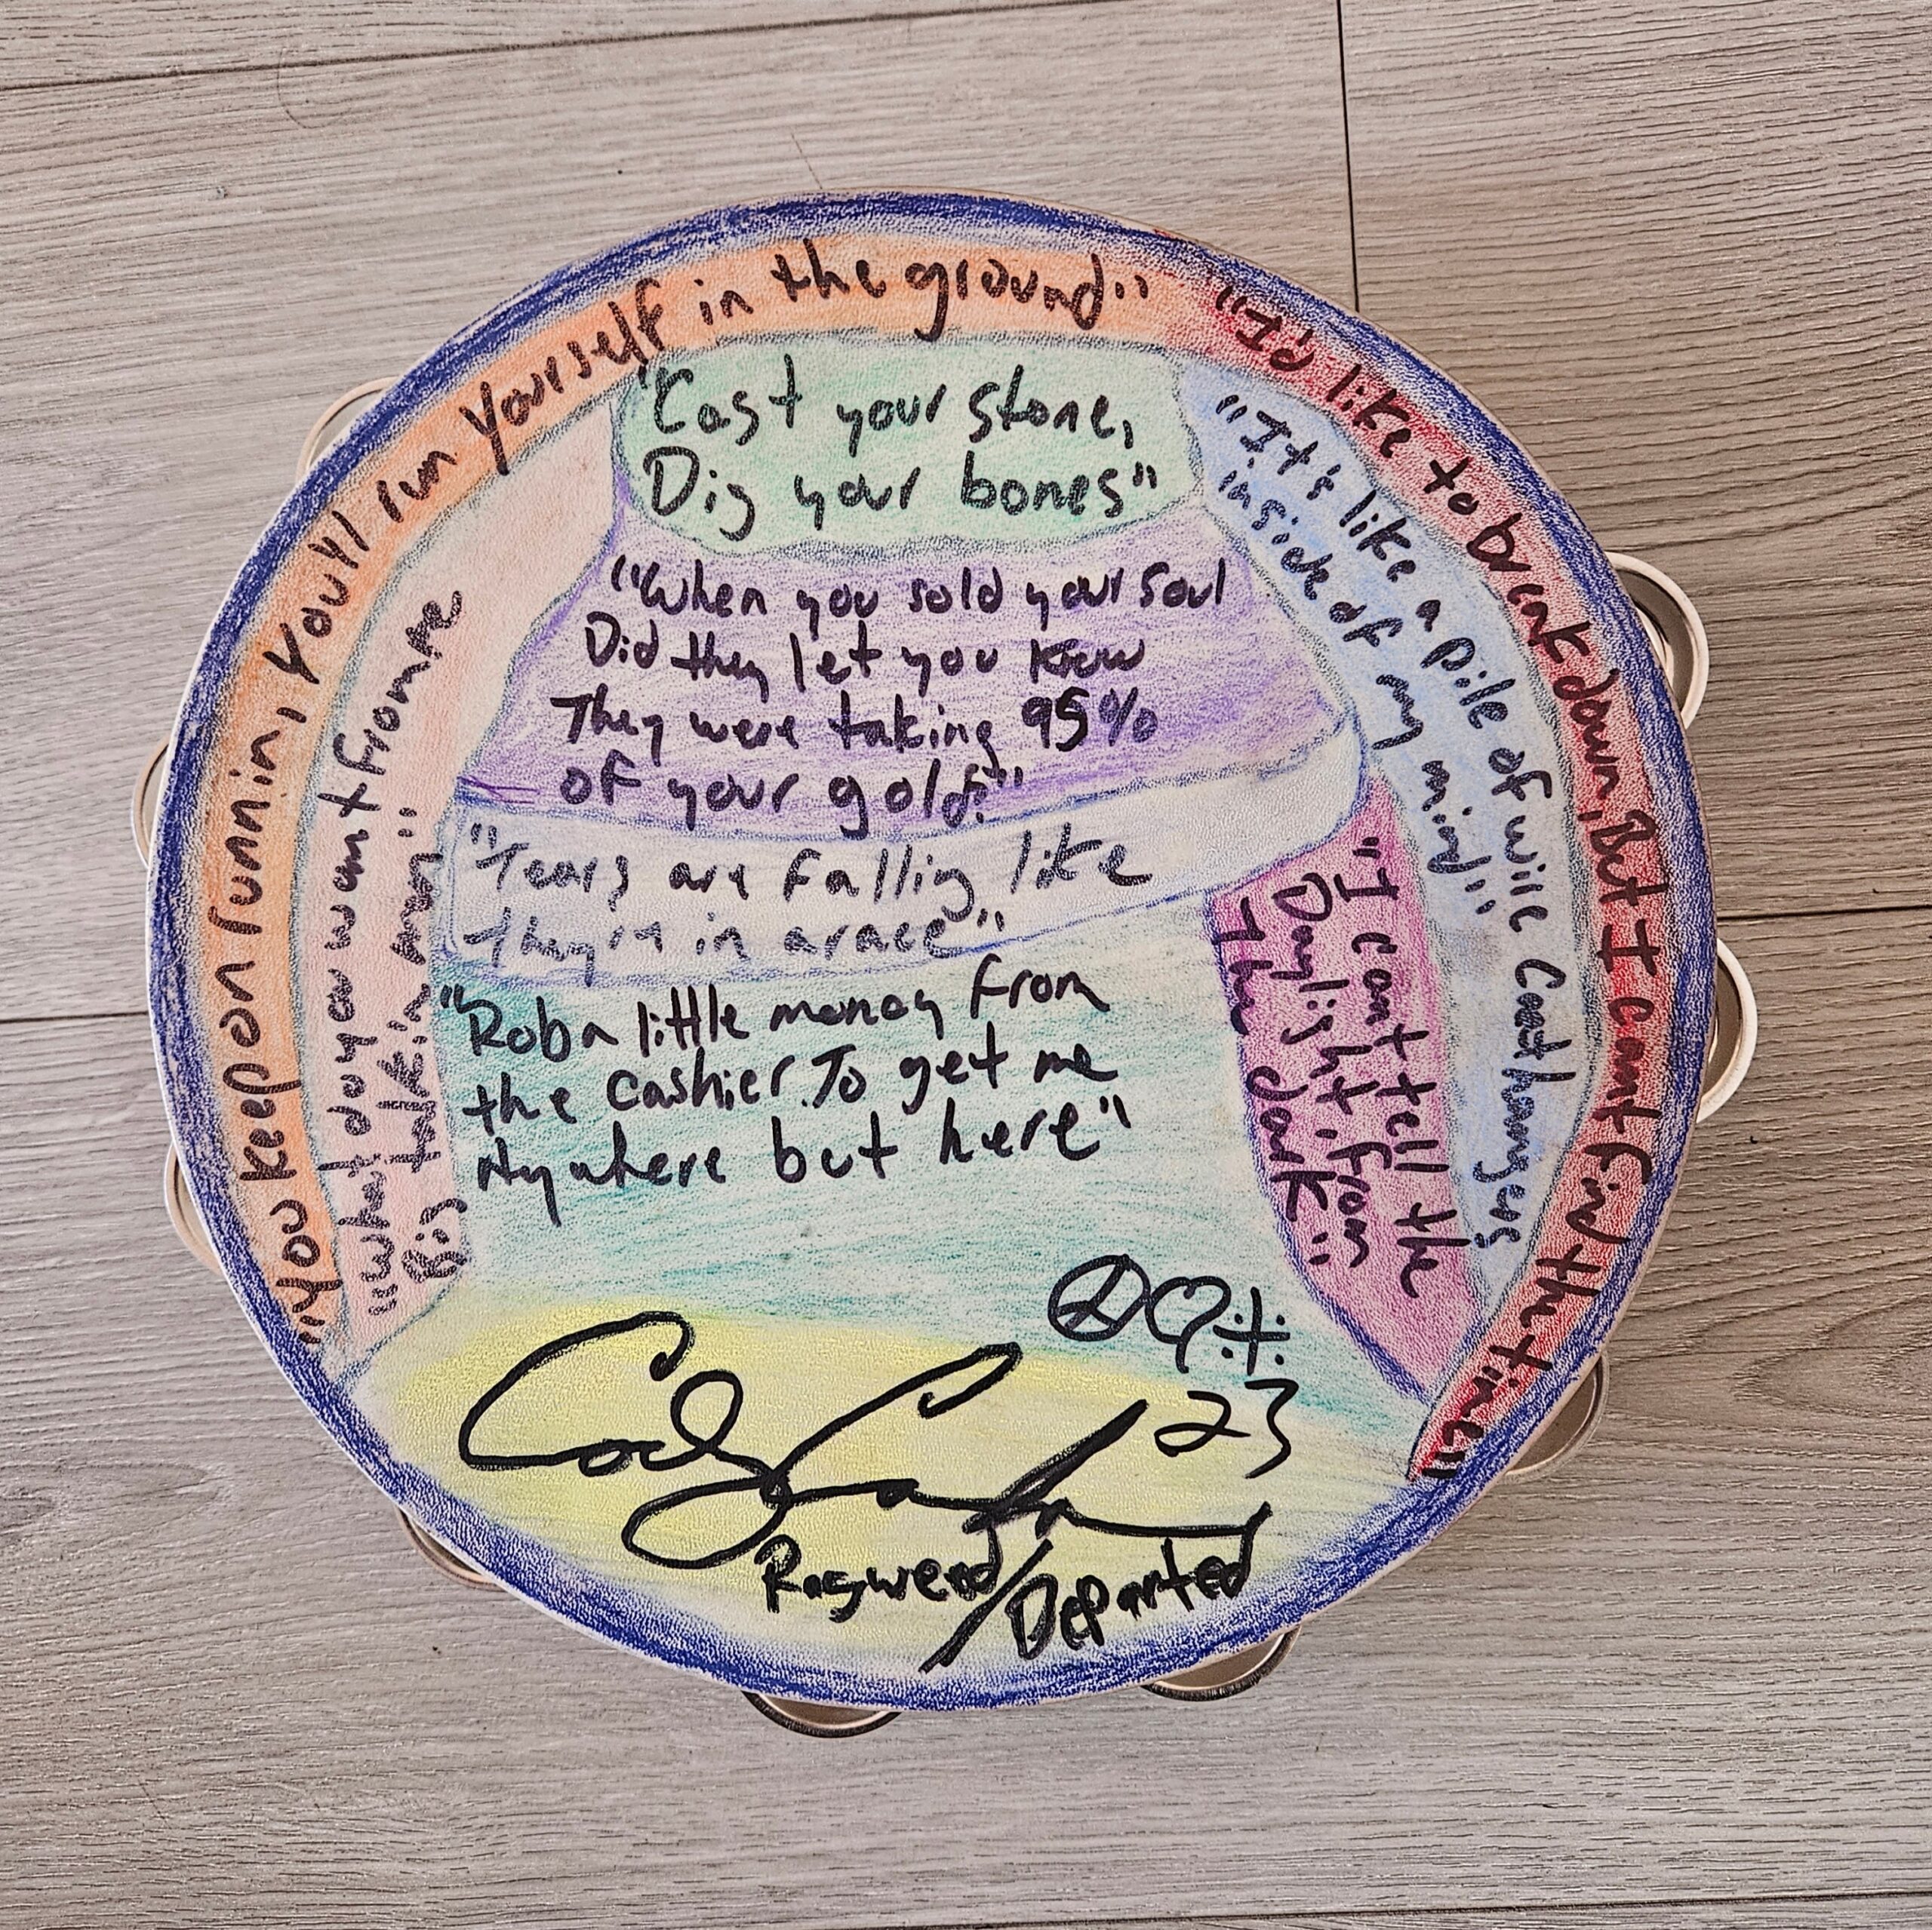 "You keep on running, You'll run yourself in the ground"
"I'd like to break down, But I cant find the time"
"Cast your stone,
Dig your bones"
"It's like a pile of wire Coat hangers
inside of my mind"
"What do you want from me
Big talkin man"
"When you sold your soul
Did they let you know
They were taking 95%
of your gold?"
"Tears are falling like
they're in a race"
"I cant tell the
Daylight from
the dark"
"Rob a little money from
the cashier To get me
Anywhere but here"
23
Ragweed/Departed